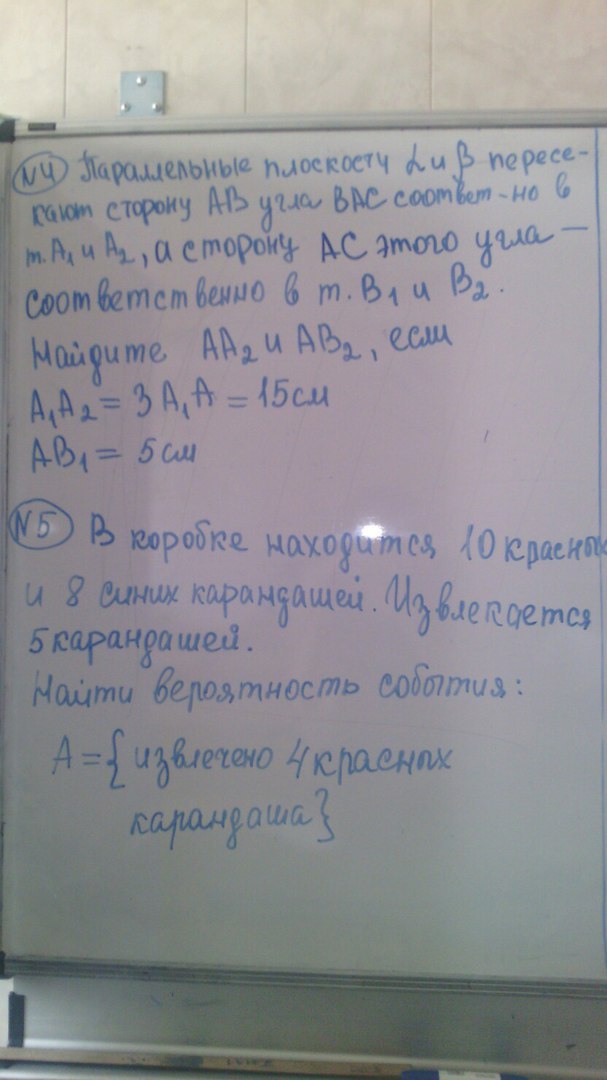 N4 Параллельные плоскости α и β пересе-
кают сторону AB угла BAC соответ-но в
т. A₁ и A₂, а сторону AC этого угла —
соответственно в т. B₁ и B₂.
Найдите AA₂ и AB₂, если
A₁A₂ = 3 A₁A = 15см
AB₁ = 5 см
N5 В коробке находится 10 красных
и 8 синих карандашей. Извлекается
5 карандашей.
Найти вероятность события:
A = { извлечено 4 красных
карандаша}